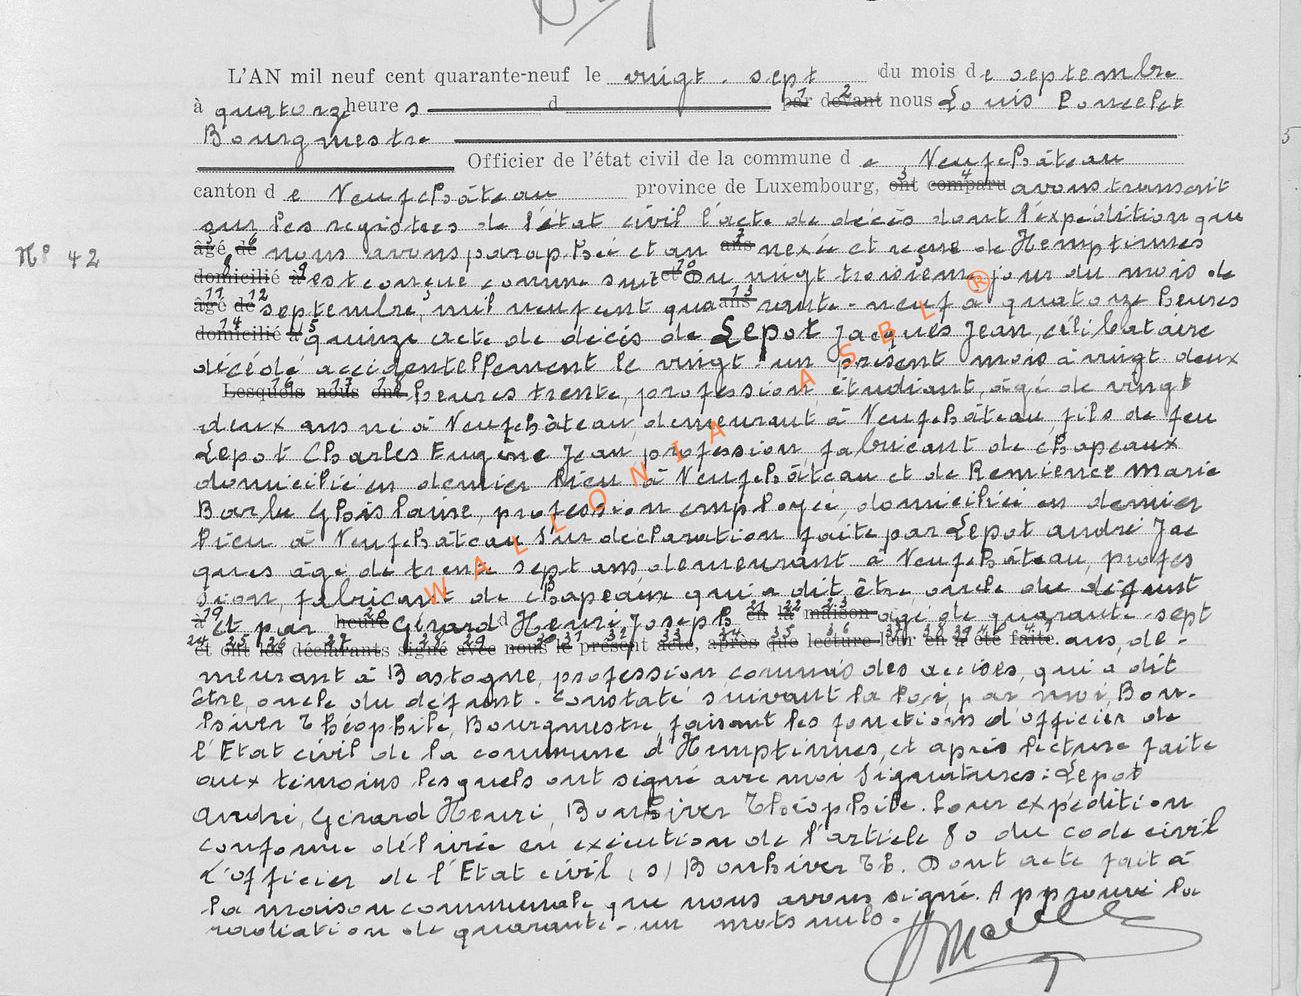 L'AN mil neuf cent quarante-neuf le vingt-sept du mois de septembre
à quatorze heures d par devant nous Louis Poncelet
Bourgmestre
Officier de l'état civil de la commune de Neufchâteau
canton de Neufchâteau province de Luxembourg, ont comparu avons transcrit
sur les registres de l'état civil l'acte de décès dont l'expédition que
N° 42
âgé de nous avons paraphée et an ans nexée et reçue de Hemptinnes
domicilié à est conçue comme suit et Du vingt-troisième jour du mois de
âgé de septembre, mil neuf cent qua ans rante-neuf à quatorze heures
domicilié à quinze acte de décès de Lepot Jacques Jean, célibataire
décédé accidentellement le vingt un présent mois à vingt deux
Lesquels nous ont heures trente, profession étudiant, âgé de vingt
deux ans né à Neufchâteau, demeurant à Neufchâteau, fils de feu
Lepot Charles Eugène Jean profession fabricant de chapeaux
domicilié en dernier lieu à Neufchâteau et de Remience Marie
Barbe Ghislaine, profession employée, domiciliée en dernier
lieu à Neufchâteau Sur déclaration faite par Lepot André Jac
ques âgé de trente sept ans, demeurant à Neufchâteau, profes
sion, fabricant de chapeaux qui a dit être oncle du défunt
à Et par heure Gérard d Henri Joseph en la maison âgé de quarante-sept
et ont les déclarants signé avec nous le présent acte, après que lecture leur en a été faite. ans, de-
meurant à Bastogne, profession commis des accises, qui a dit
être oncle du défunt. Constaté suivant la loi, par moi, Bon-
hiver Théophile, Bourgmestre, faisant les fonctions d'officier de
l'Etat civil de la commune d'Hemptinnes, et après lecture faite
aux témoins lesquels ont signé avec moi Signatures: Lepot
André, Gérard Henri, Bonhiver Théophile. Pour expédition
conforme délivrée en exécution de l'article 80 du code civil
L'officier de l'Etat civil (s) Bonhiver Th. Dont acte fait à
la maison communale que nous avons signé. Approuvé la
radiation de quarante-un mots nuls.
WALLONIA ASBL ®